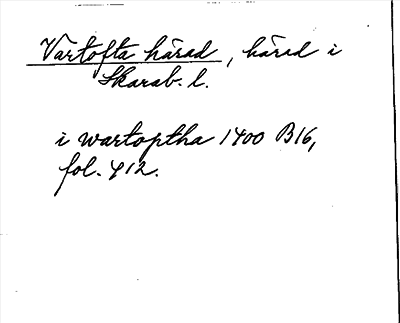 Vartofta härad, härad i
Skarab. l.
i wartoptha 1400 B16,
fol. 412.